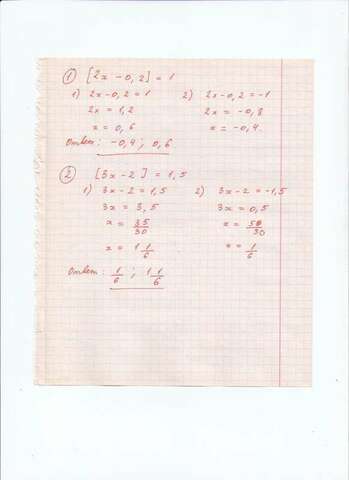 1 [2x - 0,2] = 1
1) 2x - 0,2 = 1 2) 2x - 0,2 = -1
2x = 1,2 2x = -0,8
x = 0,6 x = -0,4.
Ответ: -0,4 ; 0,6
2 [3x - 2] = 1,5
1) 3x - 2 = 1,5 2) 3x - 2 = -1,5
3x = 3,5 3x = 0,5
x = 35/30 x = 5/30
x = 1 1/6 x = 1/6
Ответ: 1/6 ; 1 1/6